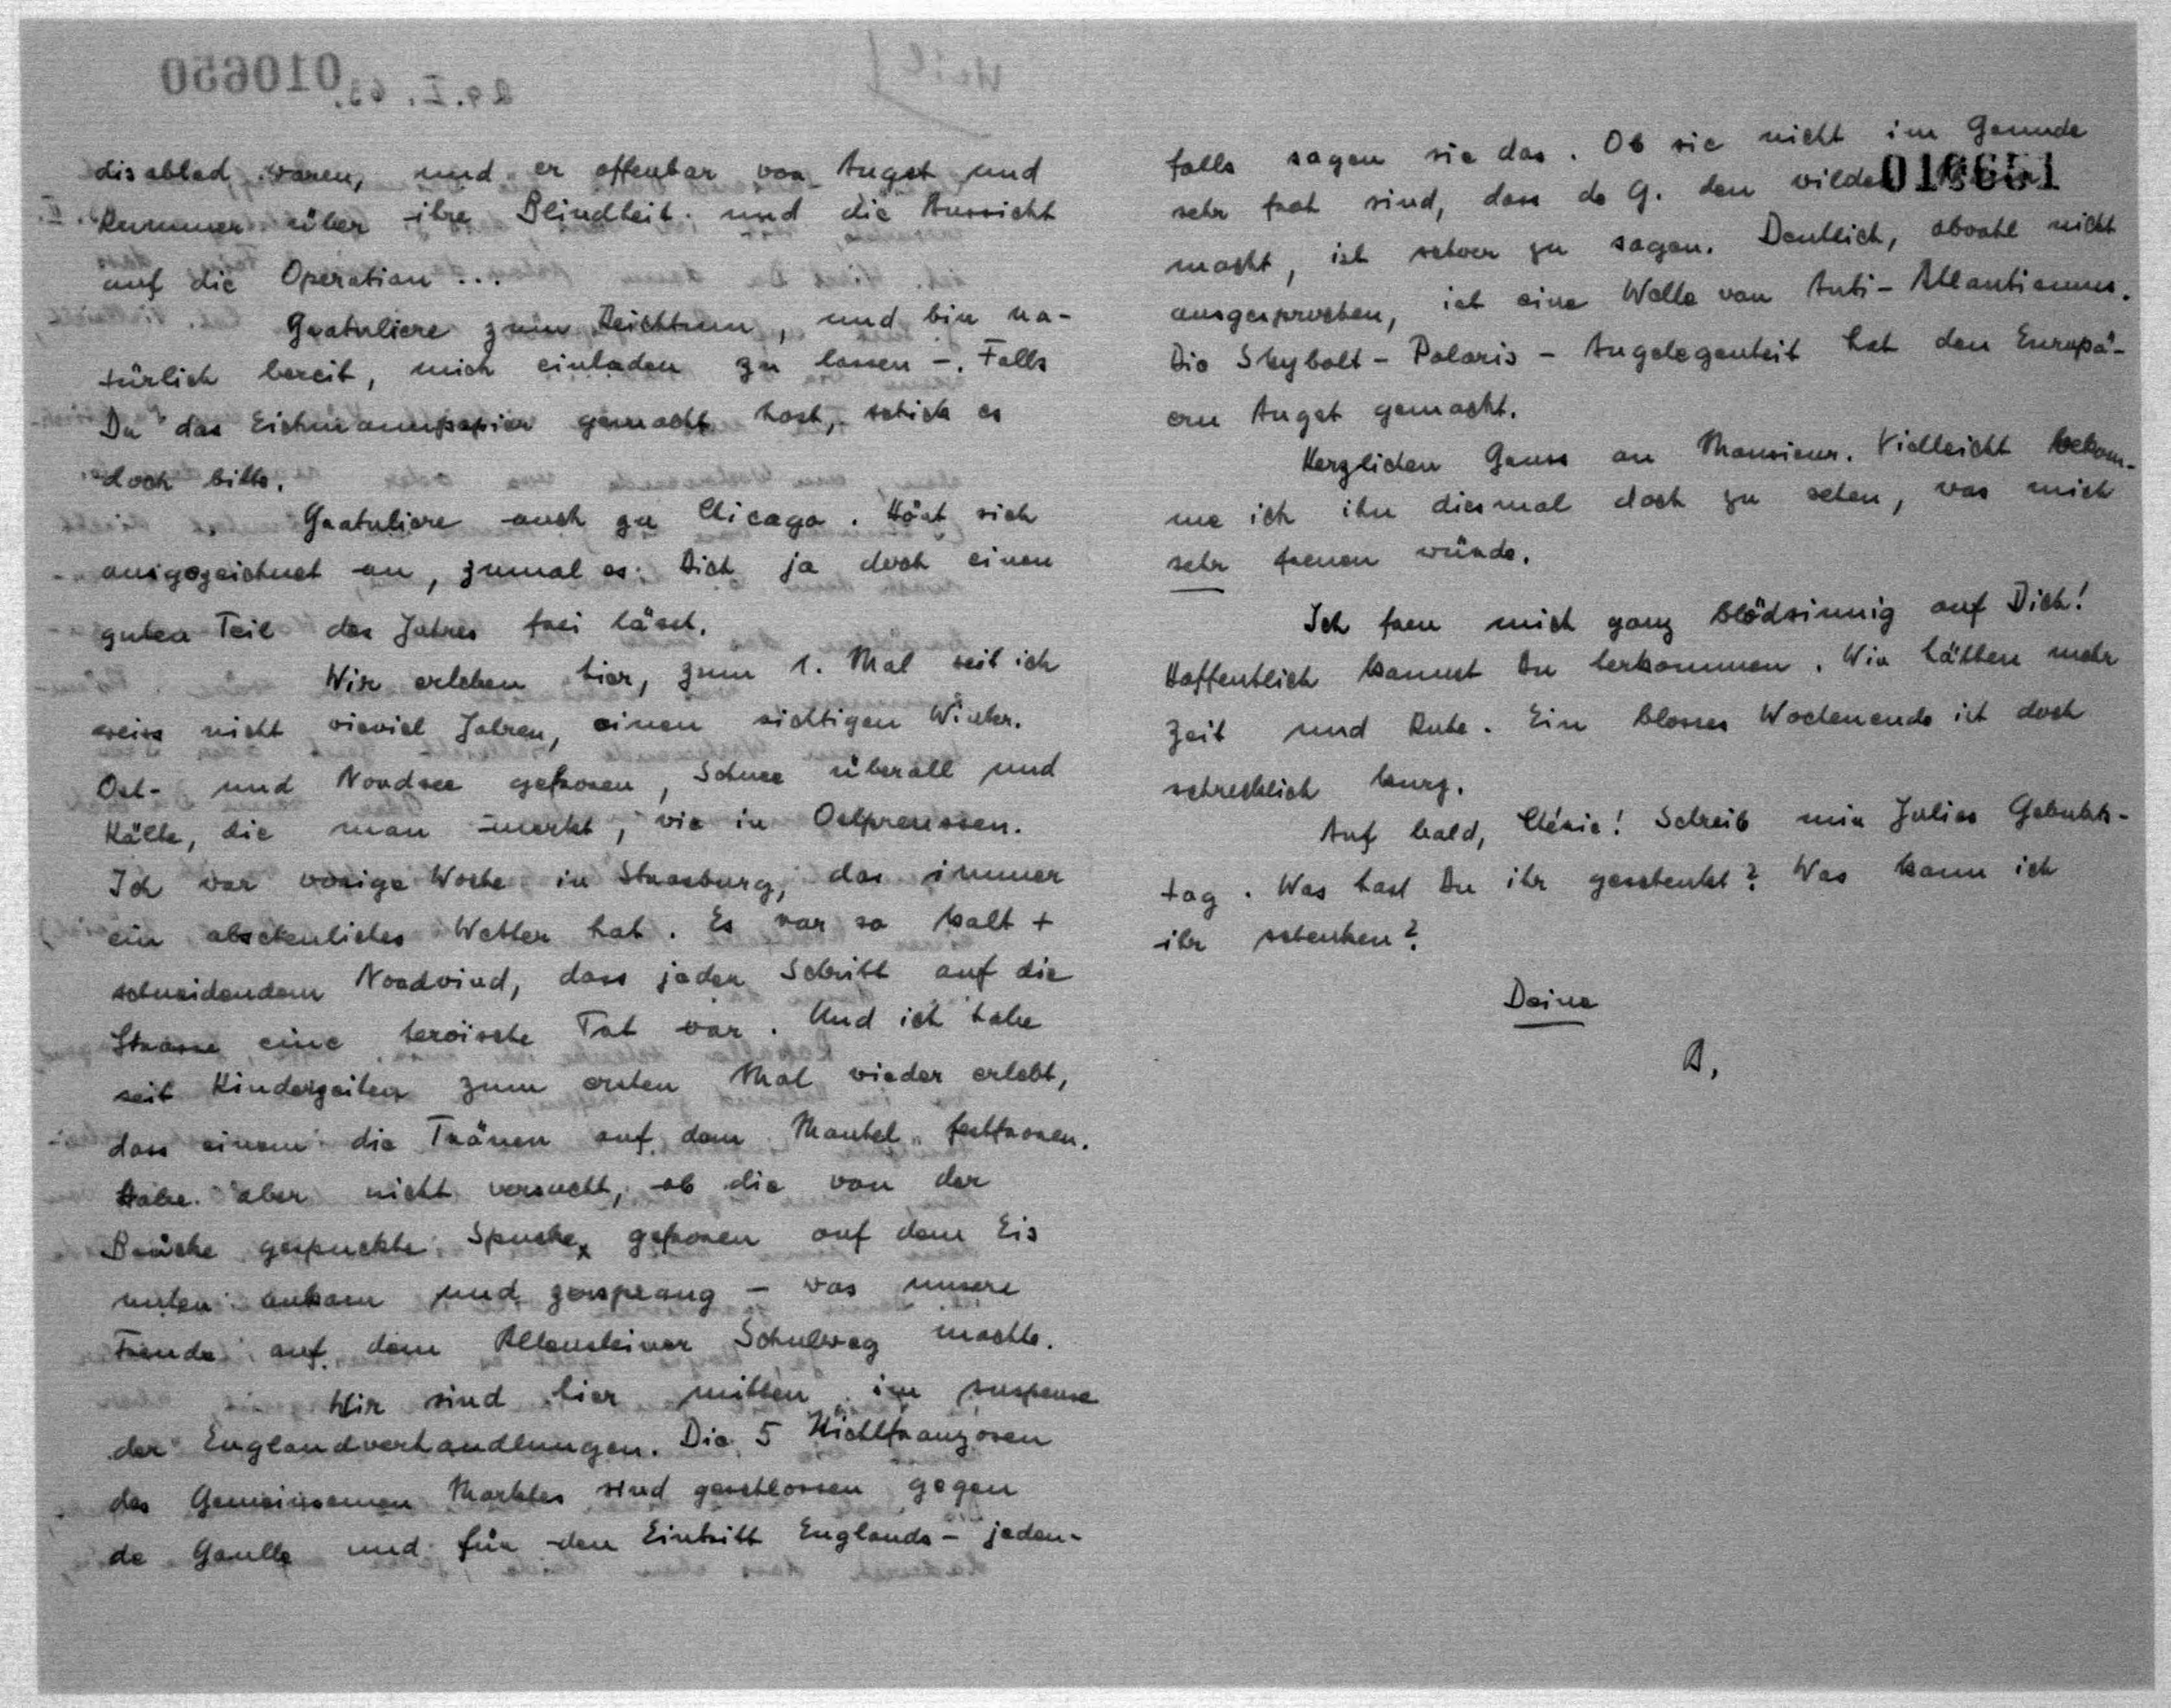 disabled waren, und er offenbar vor Angst und
Kummer über ihre Blindheit und die Aussicht
auf die Operation ...
Gratuliere zum Reichtum, und bin na-
türlich bereit, mich einladen zu lassen –. Falls
Du das Eichmannpapier gemacht hast, schick es
doch bitte.
Gratuliere auch zu Chicago. Hört sich
ausgezeichnet an, zumal es Dich ja doch einen
guten Teil des Jahres frei lässt.
Wir erleben hier, zum 1. Mal seit ich
weiss nicht wieviel Jahren, einen richtigen Winter.
Ost- und Nordsee gefroren, Schnee überall und
Kälte, die man merkt, wie in Ostpreussen.
Ich war vorige Woche in Strasburg, das immer
ein abscheuliches Wetter hat. Es war so kalt +
schneidendem Nordwind, dass jeder Schritt auf die
Strasse eine heroische Tat war. Und ich habe
seit Kinderzeiten zum ersten Mal wieder erlebt,
dass einem die Tränen auf dem Mantel festfroren.
Habe aber nicht versucht, ob die von der
Brücke gespuckte Spucke gefroren auf dem Eis
unten ankam und zersprang – was unsere
Freude auf dem Allensteiner Schulweg machte.
Wir sind hier mitten im suspense
der Englandverhandlungen. Die 5 Nichtfranzosen
des Gemeinsamen Marktes sind geschlossen gegen
de Gaulle und für den Eintritt Englands – jeden-
010651
falls sagen sie das. Ob sie nicht im Grunde
sehr froh sind, dass de G. den wilden
macht, ist schwer zu sagen. Deutlich, obwohl nicht
ausgesprochen, ist eine Welle von Anti-Atlantismus.
Die Skybolt-Polaris-Angelegenheit hat den Europä-
ern Angst gemacht.
Herzlichen Gruss an Monsieur. Vielleicht bekom-
me ich ihn diesmal doch zu sehen, was mich
sehr freuen würde.
Ich freu mich ganz blödsinnig auf Dich!
Hoffentlich kannst Du herkommen. Wir hätten mehr
Zeit und Ruhe. Ein blosses Wochenende ist doch
schrecklich kurz.
Auf bald, Chérie! Schreib mir Julies Geburts-
tag. Was hast Du ihr geschenkt? Was kann ich
ihr schenken?
Deine
A.